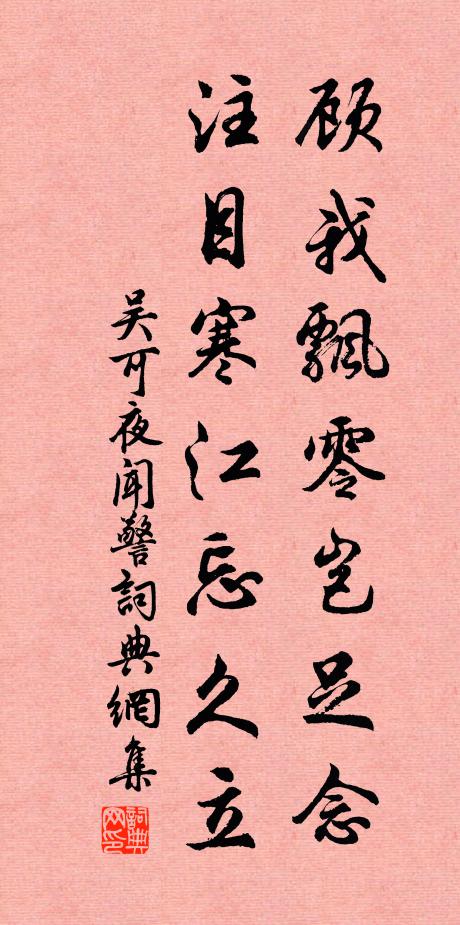 顾我飘零岂足念
注目寒江忘久立
吴可夜闻警词典网集
词典网印